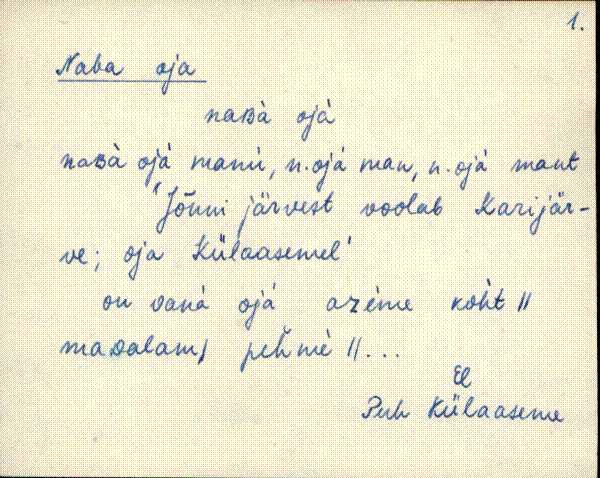 1.
Naba oja
naʙà ojà
naʙà ojà manù, n. ojà man, n. ojà mant
'Jõnni järvest voolab Karijär-
ve; oja Külaasemel'
on vanà ojà azème kòht ||
maᴅalam| pehmè || ...
El
Puh Külaaseme